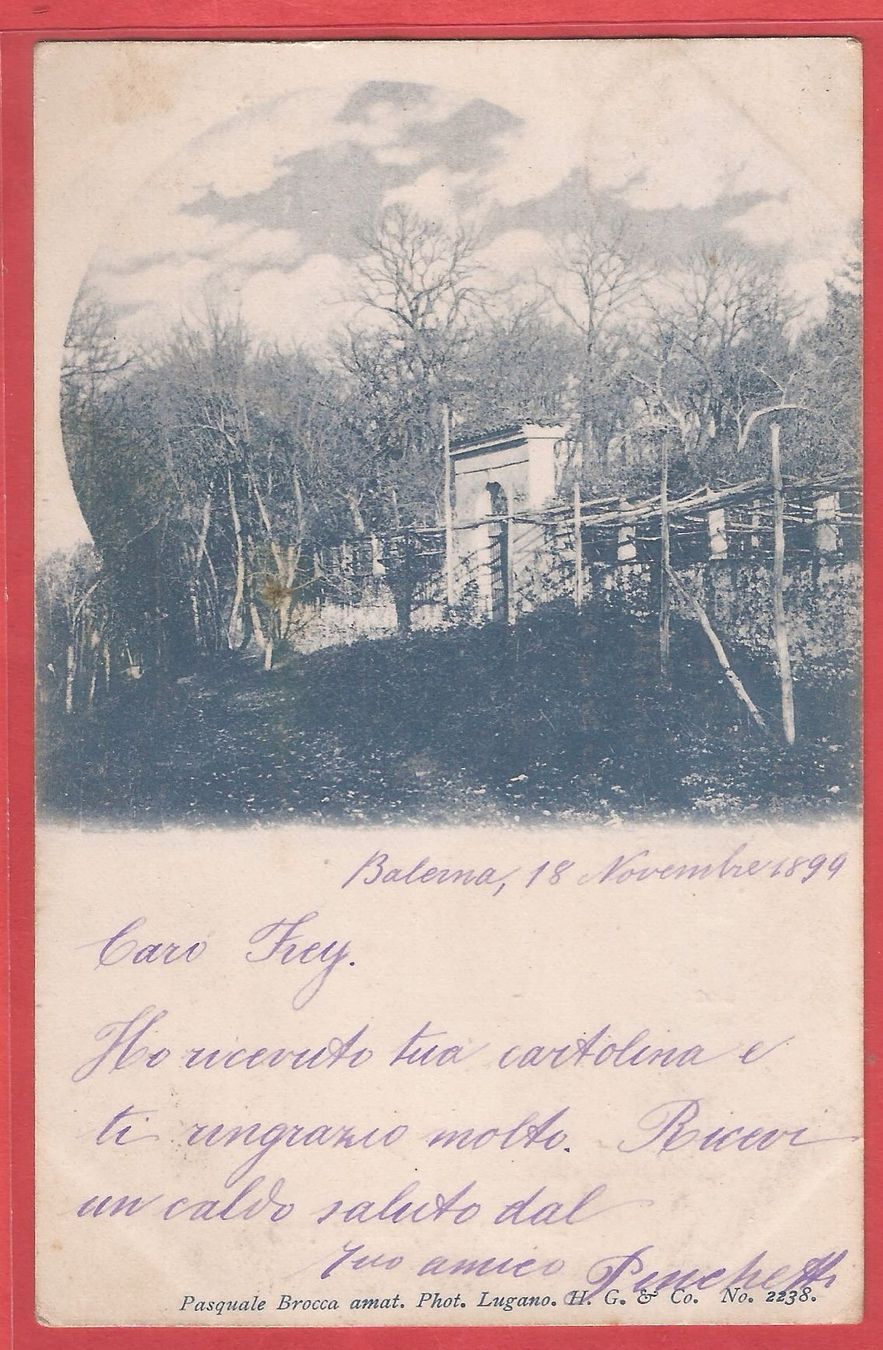 Balerna, 18 Novembre 1899
Caro Frey.
Ho ricevuto tua cartolina e
ti ringrazio molto. Ricevi
un caldo saluto dal
Tuo amico Pinchetti
Pasquale Brocca amat. Phot. Lugano. H. G. & Co. No. 2238.